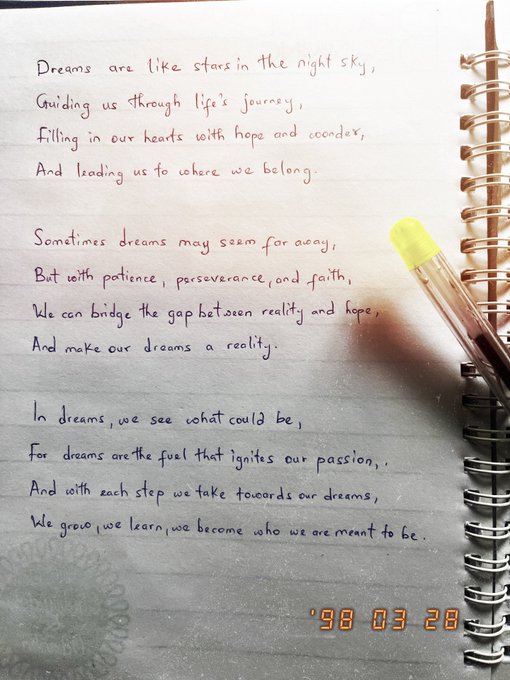 Dreams are like stars in the night sky,
Guiding us through life's journey,
Filling in our hearts with hope and wonder,
And leading us to where we belong.
Sometimes dreams may seem far away,
But with patience, perseverance, and faith,
We can bridge the gap between reality and hope,
And make our dreams a reality.
In dreams, we see what could be,
For dreams are the fuel that ignites our passion, .
And with each step we take towards our dreams,
We grow, we learn, we become who we are meant to be.
'98 03 28